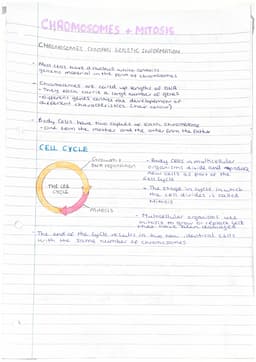 CHROMOSOMES + MITOSIS
CHROMOSOMES CONTAIN GENETIC INFORMATION
- Most cells have a nucleus which contains
genetic material in the form of chromosomes
- Chromosomes are coiled up lengths of DNA
- They each carry a large number of genes
- different genes control the development of
different characteristics
- Body cells have two copies of each chromosome
- one from the mother and the other from the father
CELL CYCLE
Growth +
DNA replication
THE CELL
CYCLE
Mitosis
- Body cells in multicellular
organisms divide and
new cells as part of the
cell cycle
- The stage in cycle in which
the cell divides is called
Mitosis
- Multicellular organisms use
mitosis to grow or replace cells
that have been damaged
- The end of the cycle results in two new identical cells
with the same number of chromosomes